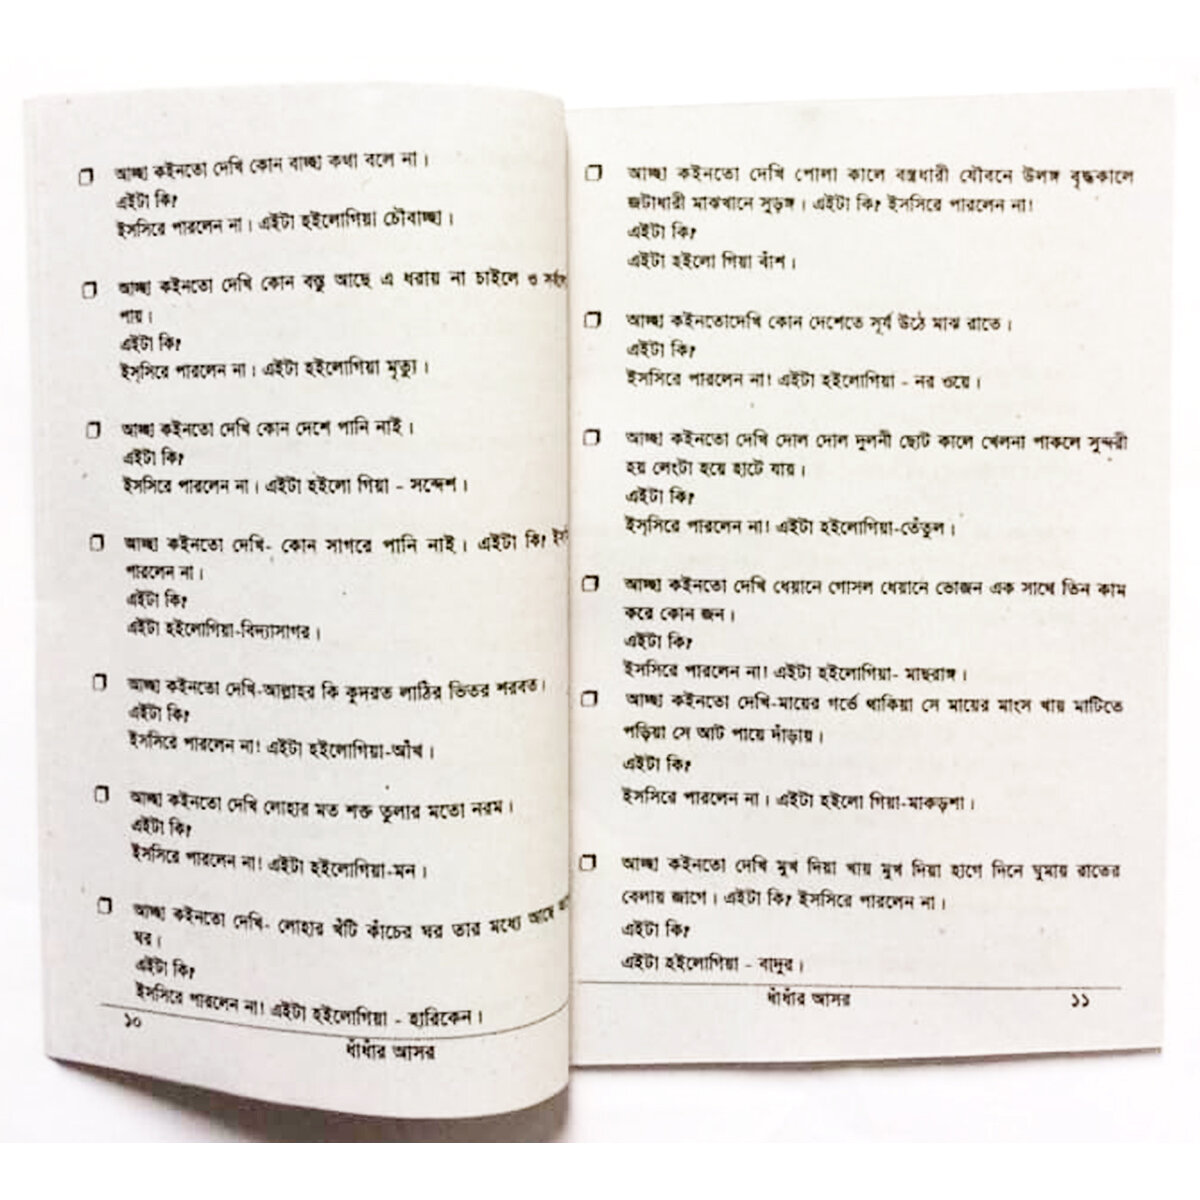 আচ্ছা কইনতো দেখি কোন বাচ্ছা কথা বলে না।
এইটা কি?
ইসসিরে পারলেন না। এইটা হইলোগিয়া চৌবাচ্ছা।
আচ্ছা কইনতো দেখি কোন বস্তু আছে এ ধরায় না চাইলে ও
পায়।
এইটা কি?
ইসসিরে পারলেন না। এইটা হইলোগিয়া মৃত্যু।
আচ্ছা কইনতো দেখি কোন দেশে পানি নাই।
এইটা কি?
ইসসিরে পারলেন না। এইটা হইলো গিয়া - সন্দেশ।
আচ্ছা কইনতো দেখি- কোন সাগরে পানি নাই। এইটা কি?
পারলেন না।
এইটা কি?
এইটা হইলোগিয়া-বিদ্যাসাগর।
আচ্ছা কইনতো দেখি-আল্লাহর কি কুদরত লাঠির ভিতর শরবত।
এইটা কি?
ইসসিরে পারলেন না! এইটা হইলোগিয়া-আঁখ।
আচ্ছা কইনতো দেখি লোহার মত শক্ত তুলার মতো নরম।
এইটা কি?
ইসসিরে পারলেন না! এইটা হইলোগিয়া-মন।
আচ্ছা কইনতো দেখি- লোহার খঁটি কাঁচের ঘর তার মধ্যে আছে
ঘর।
এইটা কি?
ইসসিরে পারলেন না! এইটা হইলোগিয়া - হারিকেন।
১০
ধাঁধাঁর আসর
আচ্ছা কইনতো দেখি পোলা কালে বস্ত্রধারী যৌবনে উলঙ্গ বৃদ্ধকালে
জটাধারী মাঝখানে সুড়ঙ্গ। এইটা কি? ইসসিরে পারলেন না!
এইটা কি?
এইটা হইলো গিয়া বাঁশ।
আচ্ছা কইনতোদেখি কোন দেশেতে সূর্য উঠে মাঝ রাতে।
এইটা কি?
ইসসিরে পারলেন না! এইটা হইলোগিয়া - নর ওয়ে।
আচ্ছা কইনতো দেখি দোল দোল দুলনী ছোট কালে খেলনা পাকলে সুন্দরী
হয় লেংটা হয়ে হাটে যায়।
এইটা কি?
ইসসিরে পারলেন না! এইটা হইলোগিয়া-তেঁতুল।
আচ্ছা কইনতো দেখি ধেয়ানে গোসল ধেয়ানে ভোজন এক সাথে তিন কাম
করে কোন জন।
এইটা কি?
ইসসিরে পারলেন না! এইটা হইলোগিয়া- মাছরাঙ্গ।
আচ্ছা কইনতো দেখি-মায়ের গর্ভে থাকিয়া সে মায়ের মাংস খায় মাটিতে
পড়িয়া সে আট পায়ে দাঁড়ায়।
এইটা কি?
ইসসিরে পারলেন না। এইটা হইলো গিয়া-মাকড়শা।
আচ্ছা কইনতো দেখি মুখ দিয়া খায় মুখ দিয়া হাগে দিনে ঘুমায় রাতের
বেলায় জাগে। এইটা কি? ইসসিরে পারলেন না।
এইটা কি?
এইটা হইলোগিয়া - বাদুর।
ধাঁধাঁর আসর
১১